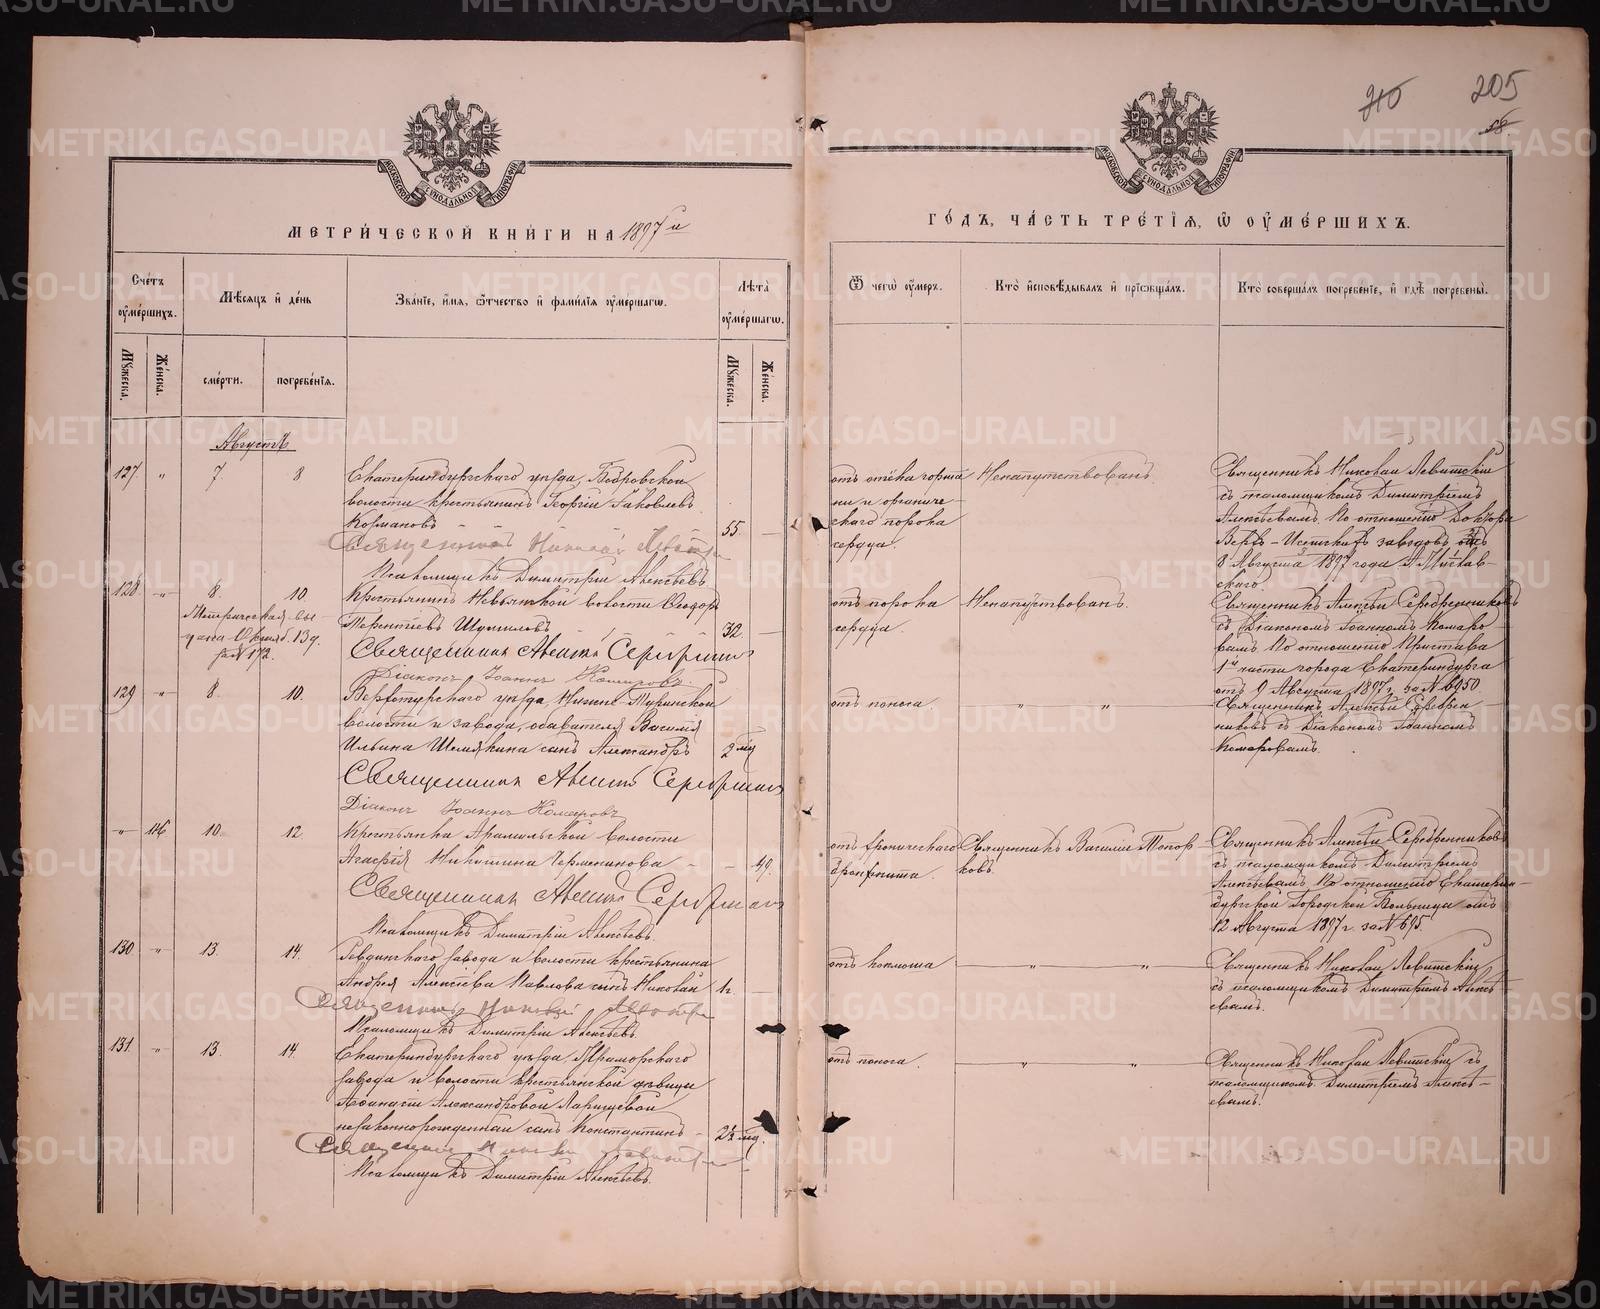 METRIKI.GASO-URAL.RU
205
МОСКОВСКОЙ СѴНОДАЛЬНОЙ ТИПОГРАФІИ
МЕТРИ́ЧЕСКОЙ КНИ́ГИ НА 1897й
Сче́тъ ᲂу҆ме́ршихъ.
Мѣ́сяцъ и҆ де́нь
Зва́нїе, и҆́мѧ, ѻ҆́тчество и҆ фами́лїѧ ᲂу҆ме́ршагѡ.
Лѣта̀ ᲂу҆ме́ршагѡ.
Мꙋ́жеска.
Же́нска.
сме́рти.
погребе́нїѧ.
Мꙋ́жеска.
Же́нска.
Августъ
127. " 7. 8
Екатеринбургскаго уѣзда, Бобровской
волости крестьянинъ Георгій Іаковлевъ
Кормановъ 55.
Священникъ Николай Левитскій
Псаломщикъ Димитрій Алексѣевъ.
128 " 8. 10.
Крестьянинъ Невьянской волости Ѳеодоръ
Терентіевъ Шумиловъ 32.
Метрическая вы-
дана Октяб. 13 д.
за № 172.
Священникъ Алексій Серебренниковъ
Діаконъ Іоаннъ Комаровъ.
129 " 8. 10.
Верхотурскаго уѣзда Нижне-Туринской
волости и завода, обывателя Василія
Ильина Шемякина сынъ Александръ 2 мѣс.
Священникъ Алексій Серебренниковъ
Діаконъ Іоаннъ Комаровъ
" 116 10. 12
Крестьянка Арамильской волости
Агафія Никитина Черменинова 49.
Священникъ Алексій Серебренниковъ
Псаломщикъ Димитрій Алексѣевъ.
130 " 13. 14.
Ревдинскаго завода и волости крестьянина
Андрея Алексіева Павлова сынъ Николай 1 г.
Священникъ Николай Левитскій
Псаломщикъ Димитрій Алексѣевъ.
131. " 13. 14.
Екатеринбургскаго уѣзда, Мраморскаго
завода и волости крестьянской дѣвицы
Александровой Ларищевой
незаконнорожденный сынъ Константинъ 2½ мѣс.
Священникъ Николай Левитскій
Псаломщикъ Димитрій Алексѣевъ.
ГО́ДЪ, ЧА́СТЬ ТРЕ́ТЇѦ, Ѡ҆ ОУ҆МЕ́РШИХЪ.
Ѿ чегѡ̀ ᲂу҆́меръ.
Кто̀ и҆сповѣ́дывалъ и҆ прїѡбща́лъ.
Кто̀ соверша́лъ погребе́нїе, и҆ гдѣ̀ погребены̀.
отъ отёка гортани
и органиче-
скаго порока
сердца.
Ненапутствованъ.
Священникъ Николай Левитскій
съ псаломщикомъ Димитріемъ
Алексѣевымъ. По отношенію Доктора
Верх-Исетскихъ заводовъ отъ
8 Августа 1897 года
отъ порока
сердца.
Ненапутствованъ.
Священникъ Алексѣй Серебренниковъ
съ Діакономъ Іоанномъ Комаро-
вымъ. По отношенію Пристава
1й части города Екатеринбурга
отъ 9 Августа 1897 г. за № 6950.
отъ поноса. " "
Священникъ Алексѣй Серебрен-
никовъ съ Діакономъ Іоанномъ
Комаровымъ.
отъ хроническаго
бронхита.
Священникъ Василій Топор-
ковъ.
Священникъ Алексѣй Серебренниковъ
съ псаломщикомъ Димитріемъ
Алексѣевымъ. По отношенію Екатерин-
бургской Городской Больницы отъ
12 Августа 1897 г. за № 695.
отъ коклюша " "
Священникъ Николай Левитскій
съ псаломщикомъ Димитріемъ Алексѣ-
евымъ.
отъ поноса. " "
Священникъ Николай Левитскій съ
псаломщикомъ Димитріемъ Алексѣ-
евымъ.